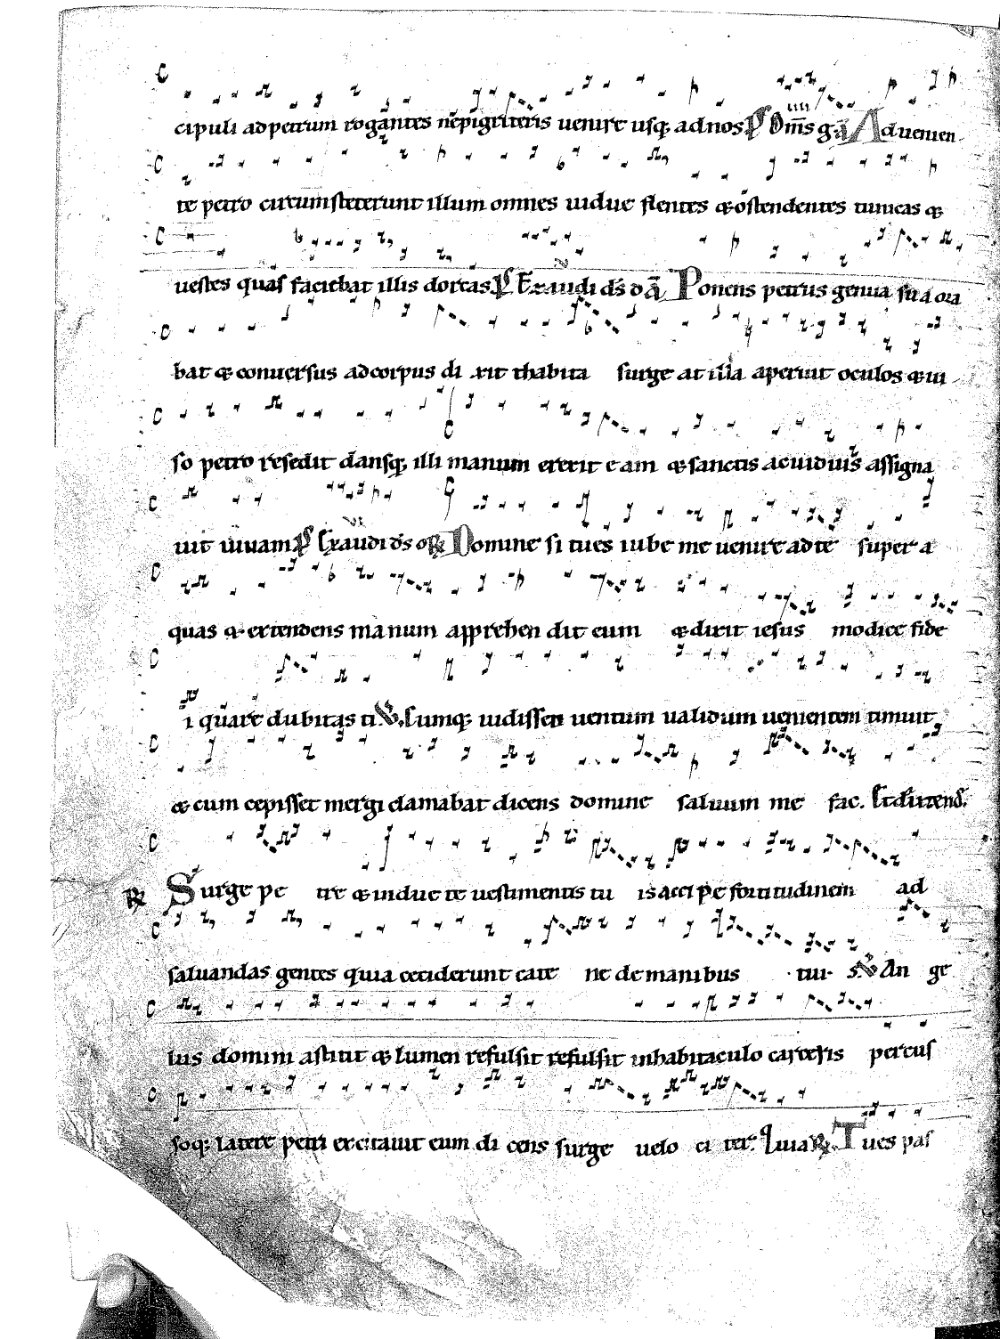 cipuli ad petrum rogantes ne pigriteris uenire usq; ad nos. Dn̄s gā Aduenien
te petro circumsteterunt illum omnes uidue flentes & ostendentes tunicas &
uestes quas faciebat illis dorcas. Exaudi ds̄ Ponens petrus genua sua ora
bat & conuersus ad corpus di xit thabita surge at illa aperuit oculos & ui
so petro resedit dansq; illi manum erexit eam & sanctis ac uiduis assigna
uit uiuam Exaudi ds̄ Domine si tu es iube me uenire ad te super a
quas & extendens manum apprehen dit eum & dixit iesus modice fide
i quare dubitas ti Cumq; uidisset uentum ualidum uenientem timuit
& cum cepisset mergi clamabat dicens domine saluum me fac. Et extend.
℟ Surge pe tre & indue te uestimentis tu is accipe fortitudinem ad
saluandas gentes quia ceciderunt cate ne de manibus tuis ℣ An ge
lus domini astitit & lumen refulsit refulsit in habitaculo carceris percus
soq; latere petri excitauit eum di cens surge uelo ci ter. Quia ℟ Tu es pas